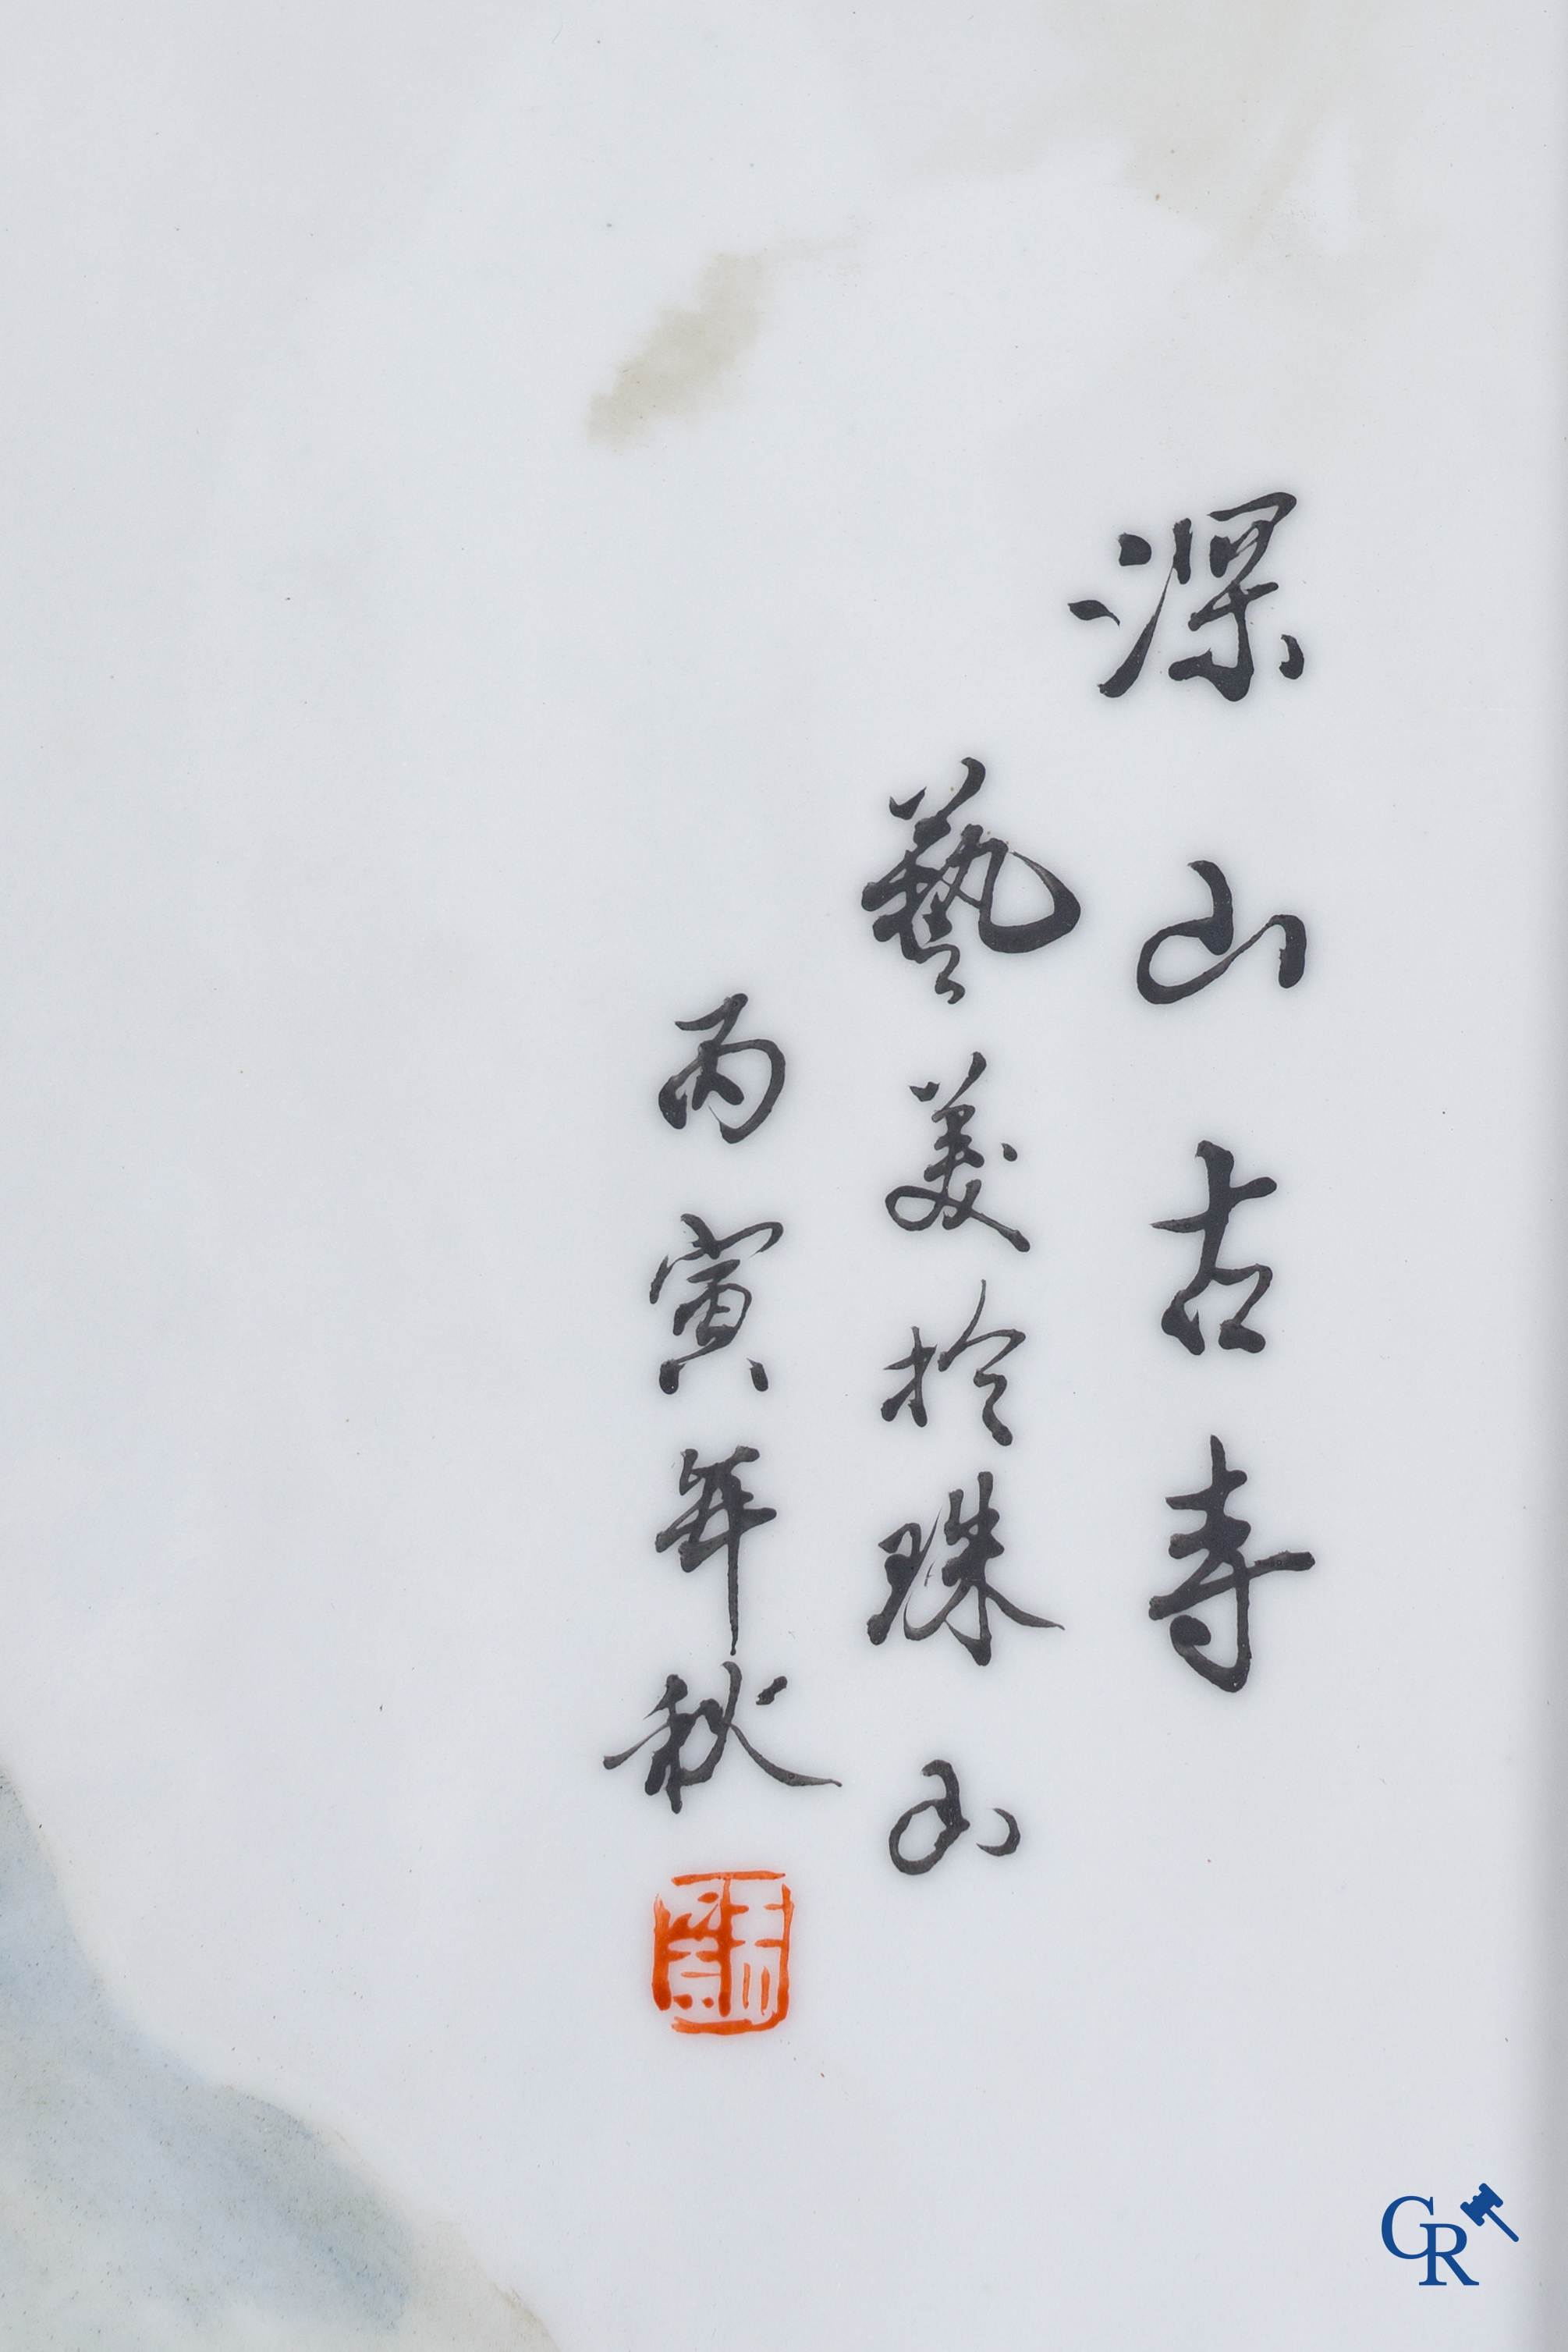 深山古寺
藝美於珠山
丙寅年秋
CR